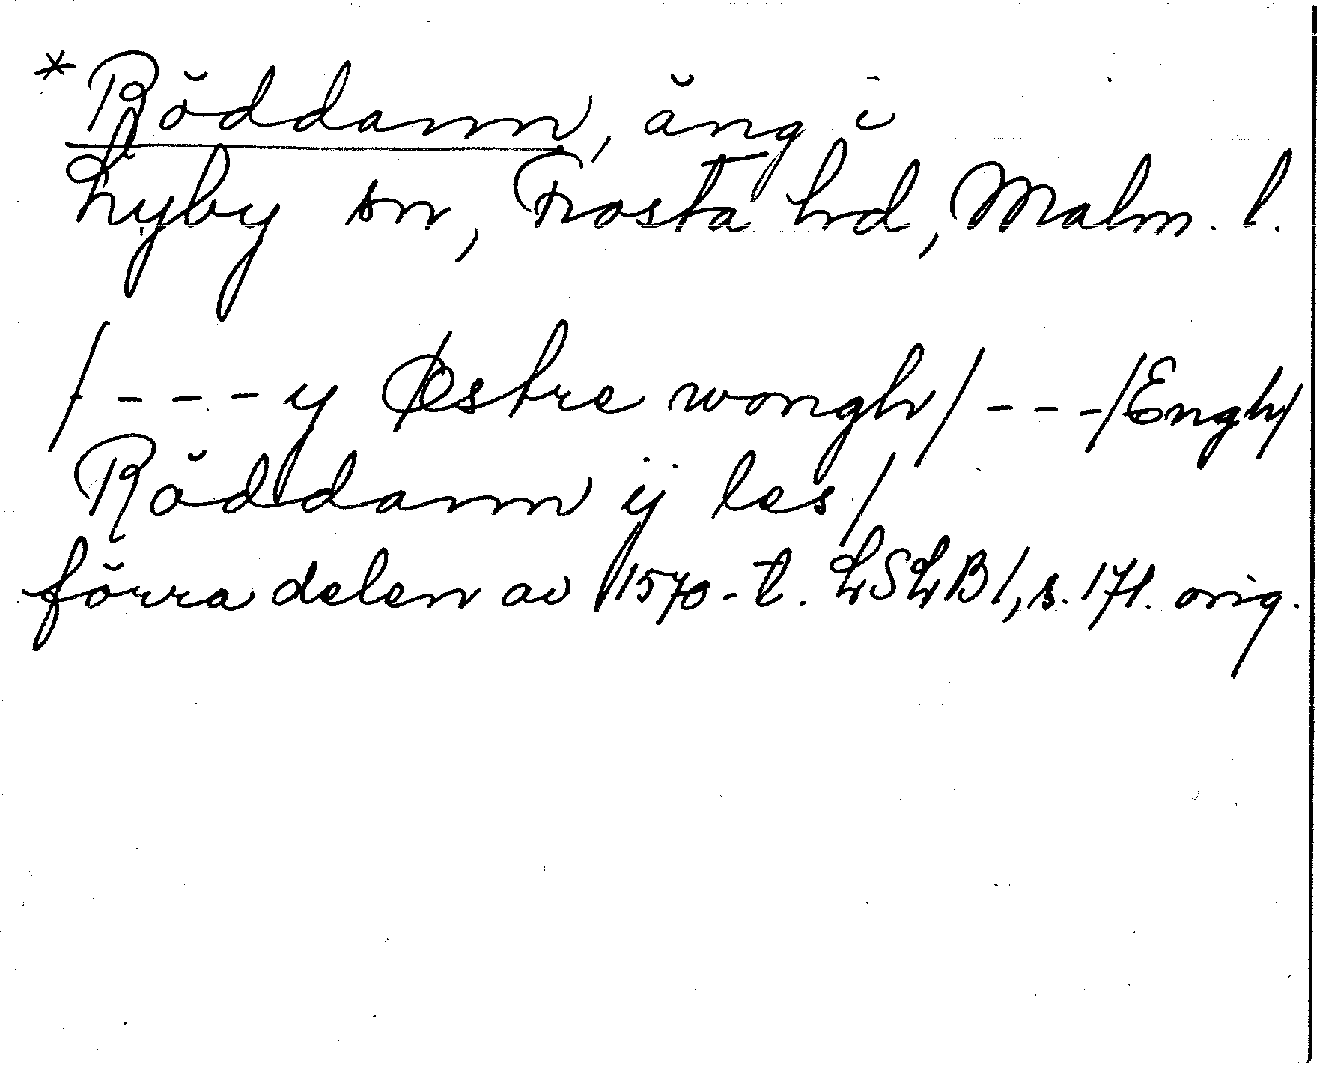 * Röddam, äng i
Lyby sn, Frosta hd, Malm. l.
/- - - y Østre wongh/ - - -/Engh/
Röddam ij les/
förra delen av 1570-t. LSLB 1, s. 171. orig.